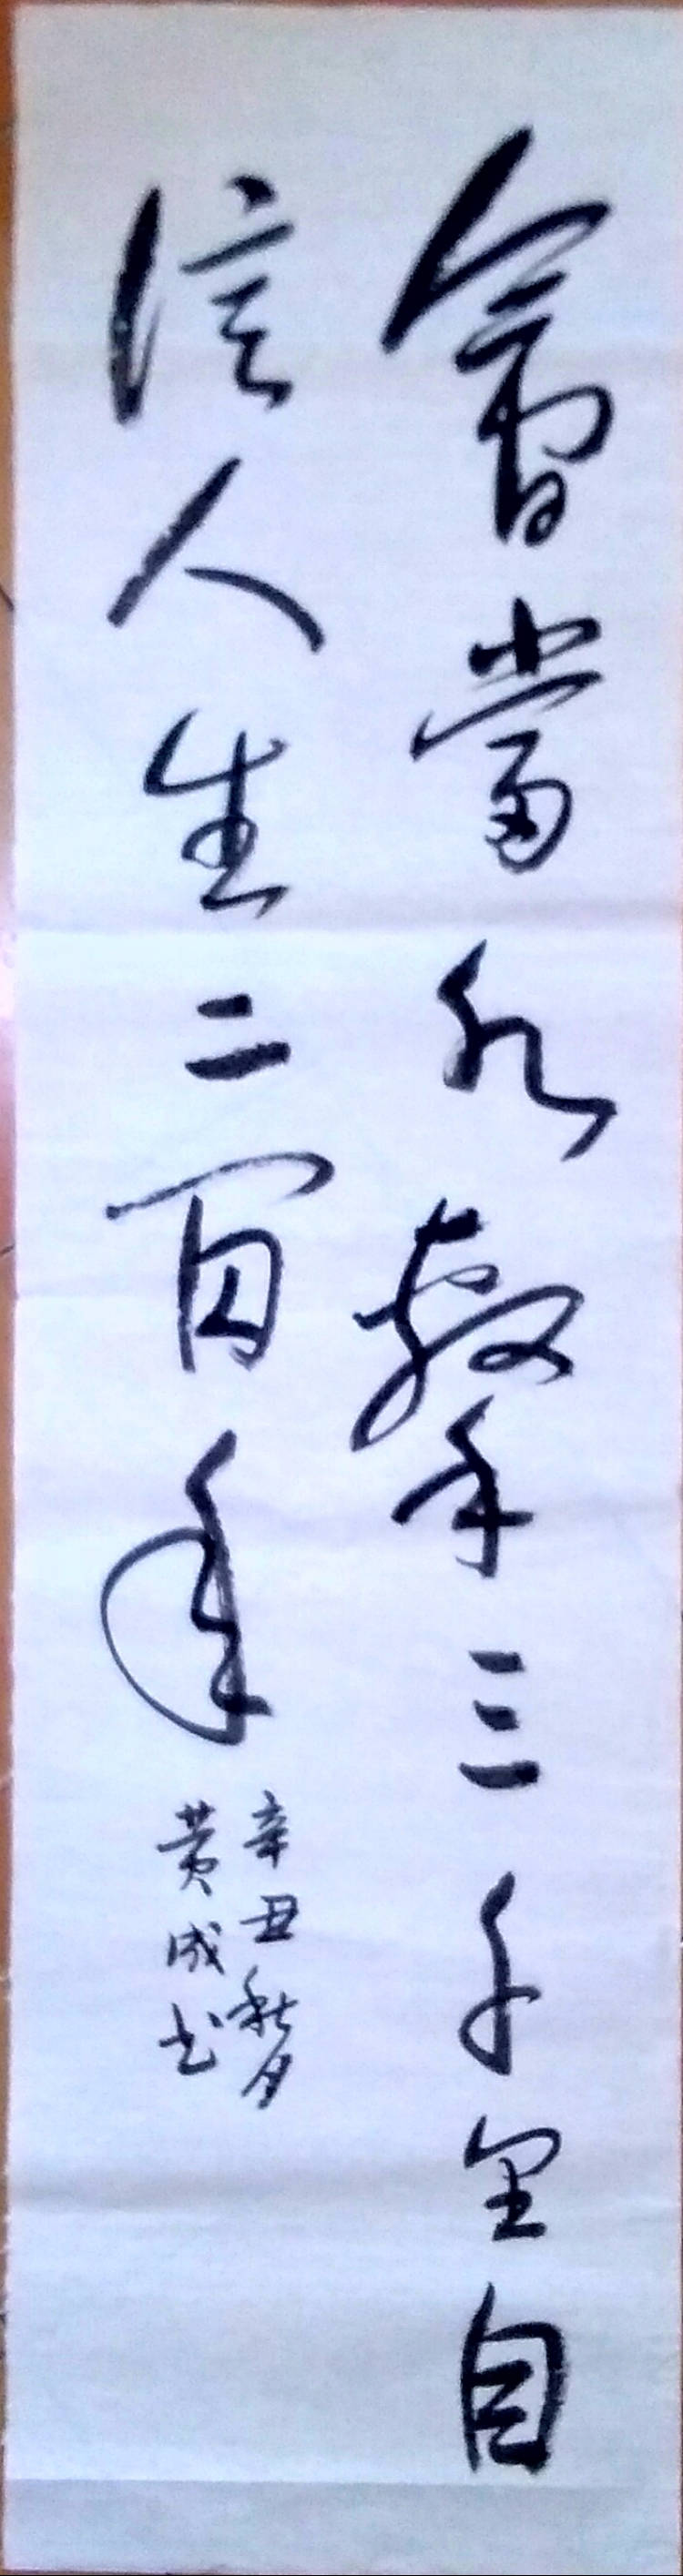 會當水擊三千里自
信人生二百年
辛丑秋月
黄成书